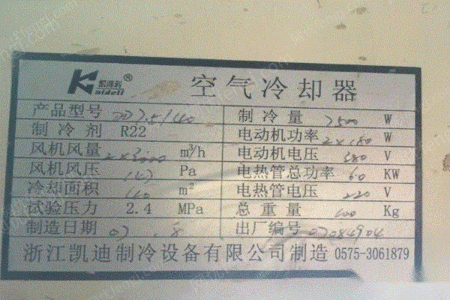 凯迪利 Kaideli® 空气冷却器
产品型号 制冷量 7500 W
制冷剂 R22 电动机功率 2×180 W
风机风量 2×3000 m³/h 电动机电压 380 V
风机风压 Pa 电热管总功率 KW
冷却面积 140 m² 电热管电压 220 V
试验压力 2.4 MPa 总重量 100 Kg
制造日期 07.8 出厂编号 07084904
浙江凯迪制冷设备有限公司制造 0575-3061879